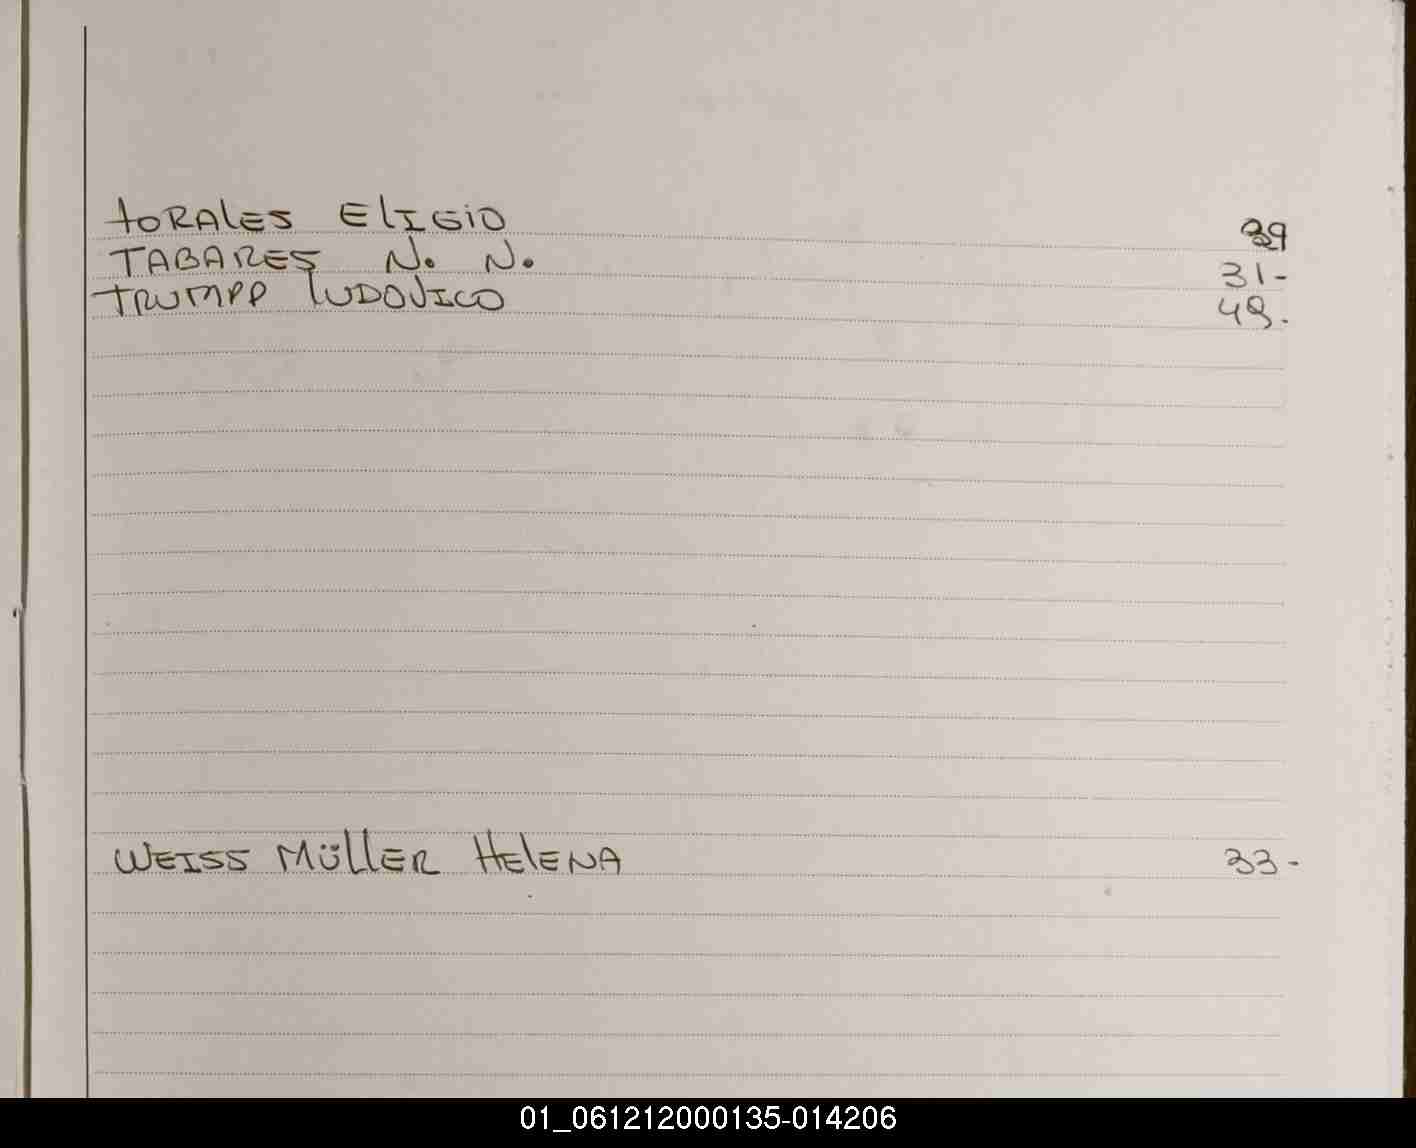 TORALES ELIGIO 39
TABARES N. N. 31-
TRUMPP LUDOVICO 49.
WEISS MÜLLER HELENA 33-
01_061212000135-014206